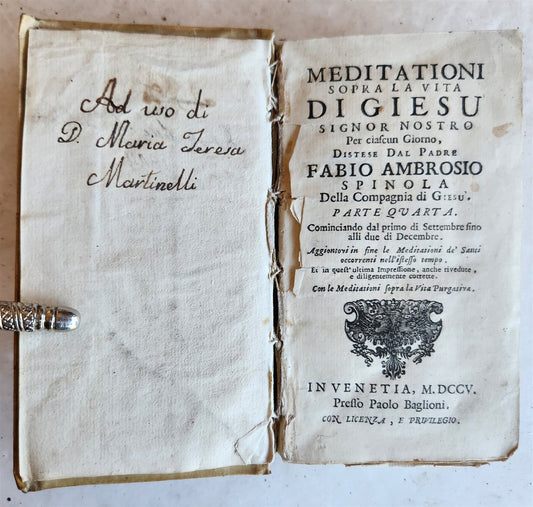 Ad uso di
D. Maria Teresa
Martinelli
MEDITATIONI
SOPRA LA VITA
DI GIESU'
SIGNOR NOSTRO
Per ciascun Giorno,
DISTESE DAL PADRE
FABIO AMBROSIO
SPINOLA
Della Compagnia di GIESU'.
PARTE QVARTA.
Cominciando dal primo di Settembre sino
alli due di Decembre.
Aggiontovi in fine le Meditationi de' Santi
occorrenti nell'istesso tempo.
Et in quest'ultima Impressione, anche rivedute,
e diligentemente corrette.
Con le Meditationi sopra la Vita Purgativa.
IN VENETIA, M.DCCV.
Presso Paolo Baglioni.
CON LICENZA, E PRIVILEGIO.